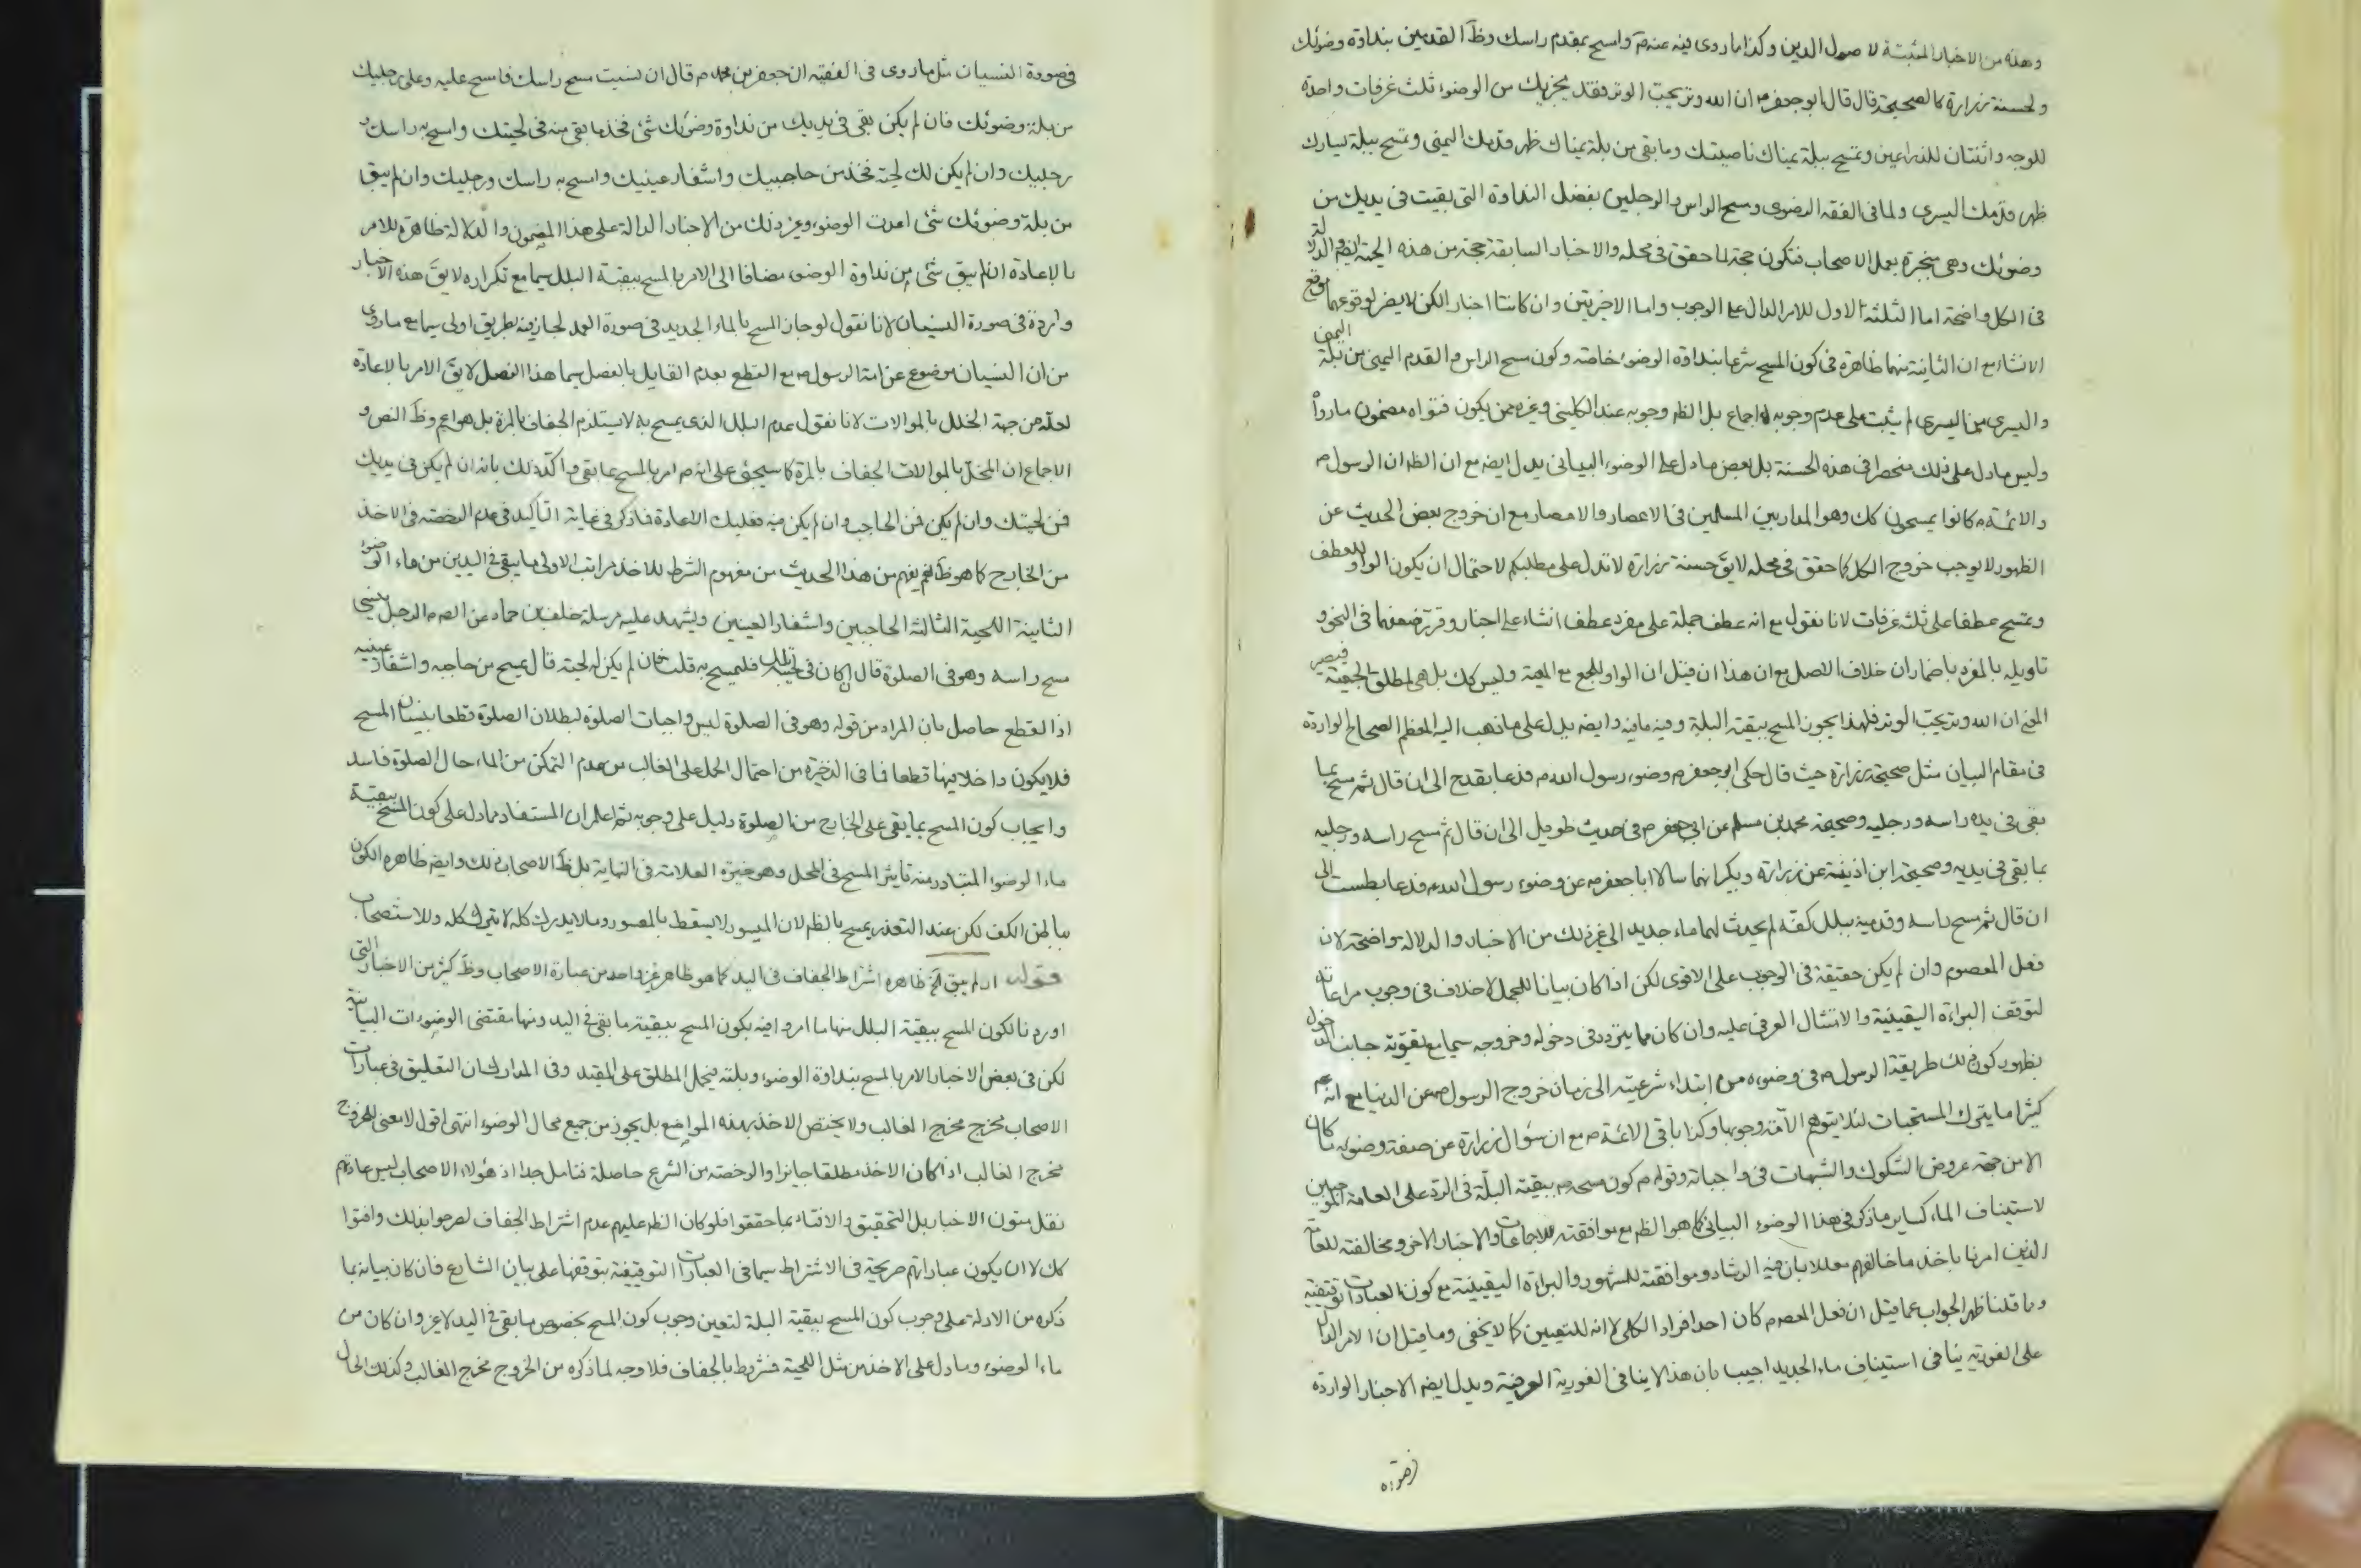 وهذه من الاخبار المثبتة لاصول الدين وكذا ما روى فيه عنه م واسمح بمقدم راسك وظ القدمين بنداوة وضوئك
ولحسنة زرارة كالصحيحة قال قال ابو جعفر م ان الله وتر يحب الوتر فقد يجزيك من الوضوء ثلث غرفات واحدة
للوجه واثنتان للذراعين وتمسح ببلة يمناك ناصيتك وما بقى من بلة يمناك ظهر قدمك اليمنى وتمسح ببلة يسارك
ظهر قدمك اليسرى ولما فى الفقه الرضوى ومسح الراس والرجلين بفضل النداوة التى بقيت فى يديك من
وضوئك وهى منجبرة بعمل الاصحاب فتكون حجة لما حقق فى محله والاخبار السابقة حجة من هذه الجهة ايضا والدلالة
فى الكل واضحة اما الثلثة الاول للامر الدال على الوجوب واما الاخريتين وان كانتا اخبارا لكن لا يضر لوقوعهما موقع
الانشاء مع ان الثانية منهما ظاهرة فى كون المسح شرعا بنداوة الوضوء خاصة وكون مسح الراس والقدم اليمنى من بلة اليمنى
واليسرى من اليسرى لم يثبت على عدم وجوبه اجماع بل الظ وجوبه عند الكلينى وغيره ممن يكون فتواه مضمون ما رواه
وليس ما دل على ذلك منحصرا فى هذه الحسنة بل بعض ما دل على الوضوء البيانى يدل ايضا مع ان الظ ان الرسول م
والائمة م كانوا يمسحون كك وهو المدار بين المسلمين فى الاعصار والامصار مع ان خروج بعض الحديث عن
الظهور لا يوجب خروج الكل كما حقق فى محله لايق حسنة زرارة لا تدل على مطلبكم لاحتمال ان يكون الواو للعطف
وتمسح عطفا على ثلثه غرفات لانا نقول مع انه عطف جملة على مفرد عطف انشاء على اخبار وقرر ضعفهما فى النحو و
تاويله بالمفرد باضمار ان خلاف الاصل مع ان هذا ان قيل ان الواو للجمع مع المعية وليس كك بل هى لمطلق الجمعية فيصير
المعنى ان الله وتر يحب الوتر فلهذا يجوز المسح ببقية البلة وفيه ما فيه وايضا يدل على ما ذهب اليه المعظم الصحاح الواردة
فى مقام البيان مثل صحيحة زرارة حيث قال حكى ابو جعفر م وضوء رسول الله م فدعا بقدح الى ان قال ثم مسح بما
بقى فى يده راسه ورجليه وصحيحة محمد بن مسلم عن ابى جعفر م فى حديث طويل الى ان قال ثم مسح راسه ورجليه
بما بقى فى يديه وصحيحة ابن اذينة عن زرارة وبكير انهما سالا ابا جعفر م عن وضوء رسول الله م فدعا بطست الى
ان قال ثم مسح راسه وقدميه ببلل كفه لم يحدث لهما ماء جديد الى غير ذلك من الاخبار والدلالة واضحة لان
فعل المعصوم وان لم يكن حقيقة فى الوجوب على الاقوى لكن اذا كان بيانا للمجمل لا خلاف فى وجوب مراعاته
لتوقف البراءة اليقينية والامتثال العرفى عليه وان كان مما يتردد فى دخوله وخروجه سيما مع تقوية جانب الدخول
بظهور كون ذلك طريقة الرسول م فى وضوءه من ابتداء شرعيته الى زمان خروج الرسول م عن الدنيا مع انهم
كثيرا ما يترك المستحبات لئلا يتوهم الامة وجوبها وكذا باقى الائمة م مع ان سؤال زرارة عن صفة وضوئه ما كان
الا من جهة عروض الشكوك والشبهات فى واجباته وقوله م كون مسحه م ببقية البلة فى الرد على العامة الموجبين
لاستيناف الماء كساير ما ذكر فى هذا الوضوء البيانى كما هو الظ مع موافقته للاجماعات والاخبار الاخر ومخالفته للعامة
الذين امرنا باخذ ما خالفهم معللا بان فيه الرشاد وموافقته للمشهور والبراءة اليقينية مع كون العبادات توقيفية
وما قلنا ظهر الجواب عما قيل ان فعل المعصوم كان احد افراد الكلى لا انه للتعيين كما لا يخفى وما قيل ان الامر الدال
على الفورية ينافى استيناف ماء الجديد اجيب بان هذا لا ينافى الفورية العرفية ويدل ايضا الاخبار الواردة
فى صورة النسيان مثل ما روى فى الفقيه ان جعفر بن محمد م قال ان نسيت مسح راسك فامسح عليه وعلى رجليك
من بلة وضوئك فان لم يكن بقى فى يديك من نداوة وضوئك شئ فخذ ما بقى منه فى لحيتك وامسح به راسك و
رجليك وان لم يكن لك لحية فخذ من حاجبيك واشفار عينيك وامسح به راسك ورجليك وان لم يبق
من بلة وضوئك شئ اعدت الوضوء وغير ذلك من الاخبار الدالة على هذا المضمون والدلالة ظاهرة للامر
بالاعادة ان لم يبق شئ من نداوة الوضوء مضافا الى الامر بالمسح ببقية البلل سيما مع تكراره لايق هذه الاخبار
واردة فى صورة النسيان لانا نقول لو جاز المسح بالماء الجديد فى صورة العمد لجاز فيه بطريق اولى سيما مع ما روى
من ان النسيان موضوع عن امة الرسول م مع القطع بعدم القايل بالفصل سيما هذا الفصل لايق الامر بالاعادة
لعله من جهة الخلل بالموالات لانا نقول عدم البلل الذى يمسح به لا يستلزم الجفاف بالمرة بل هو اعم وظ النص و
الاجماع ان المخل بالموالات الجفاف بالمرة كما سيجئ على انه م امر بالمسح بما بقى واكد ذلك بانه ان لم يكن فى يديك
فمن لحيتك وان لم يكن فمن الحاجب وان لم يكن فيه فعليك الاعادة فما ذكر فى غاية التاكيد فى عدم الرخصة فى الاخذ
من الخارج كما هو ظ نعم يفهم من هذا الحديث من مفهوم الشرط للاخذ مراتب الاولى ما يبقى فى اليدين من ماء الوضوء
الثانية اللحية الثالثة الحاجبين واشفار العينين ويشهد عليه مرسلة خلف بن حماد عن الص م الرجل ينسى
مسح راسه وهو فى الصلوة قال ان كان فى لحيته بلل فليمسح به قلت فان لم يكن له لحية قال يمسح من حاجبه واشفار عينيه
اذ القطع حاصل بان المراد من قوله وهو فى الصلوة ليس واجبات الصلوة لبطلان الصلوة قطعا بنسيان المسح
فلا يكون داخلا فيها قطعا فما فى الذخيرة من احتمال الحمل على الغالب من عدم التمكن من الماء حال الصلوة فاسد
وايجاب كون المسح بما بقى على الخارج من الصلوة دليل على وجوبه ثم اعلم ان المستفاد مما دل على كون المسح ببقية
ماء الوضوء المتبادر منه تاثير المسح فى المحل وهو خيرة العلامة فى النهاية بل ظ الاصحاب ذلك وايضا ظاهره الكون
بباطن الكف لكن عند التعذر يمسح بالظهر لان الميسور لا يسقط بالمعسور وما لا يدرك كله لا يترك كله وللاستصحاب
قوله ان لم يبق الخ ظاهره اشتراط الجفاف فى اليد كما هو ظاهر غير واحد من عبارة الاصحاب وظ كثير من الاخبار التى
اوردنا لكون المسح ببقية البلل منها ما امروا فيه بكون المسح ببقية ما بقى فى اليد ومنها مقتضى الوضوءات البيانية
لكن فى بعض الاخبار الامر بالمسح بنداوة الوضوء وبلته فيحمل المطلق على المقيد وفى المدارك ان التعليق فى عبارات
الاصحاب مخرج مخرج الغالب ولا يختص الاخذ بهذه المواضع بل يجوز من جميع محال الوضوء انتهى اقول لا معنى للخروج
مخرج الغالب اذا كان الاخذ مطلقا جايزا والرخصة من الشرع حاصلة فتامل جدا اذ هؤلاء الاصحاب ليس عادتهم
نقل متون الاخبار بل التحقيق والافتاء بما حققوا فلو كان الظ عليهم عدم اشتراط الجفاف لصرحوا بذلك وافتوا
كك لا ان يكون عباراتهم صريحة فى الاشتراط سيما فى العبارات التوقيفية بتوقفها على بيان الشارع فان كان بيانه بما
ذكره من الادلة على وجوب كون المسح ببقية البلة لتعين وجوب كون المسح بخصوص ما بقى فى اليد لا غير وان كان من
ماء الوضوء وما دل على الاخذ من مثل اللحية فشروط بالجفاف فلا وجه لما ذكره من الخروج مخرج الغالب وكذلك الحال